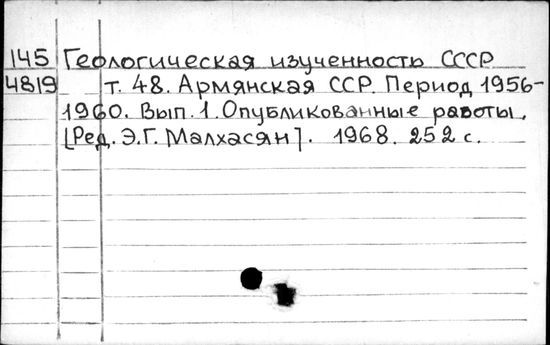 145 Геологическая изученность СССР
4819 т. 48. Армянская ССР. Период 1956-
1960. Вып. 1. Опубликованные работы.
[Ред. Э.Г. Малхасян]. 1968. 252 с.